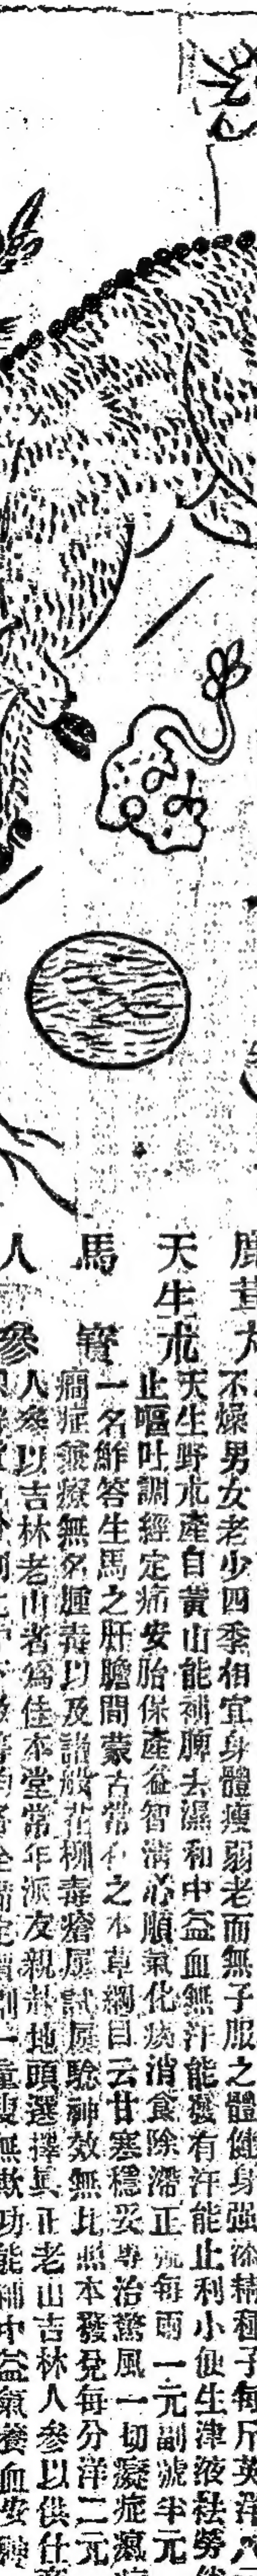 鹿茸
不燥男女老少四季相宜身體瘦弱老而無子服之體健身强添精種子每斤英洋
天生朮
天生野朮產自黃山能補脾去濕和中益血無汗能發有汗能止利小便生津液祛勞
止嘔吐調經定痛安胎保產益智清心順氣化痰消食除滯正號每兩一元副號半元
馬寳
一名鮓答生馬之肝膽間蒙古常有之本草綱目云甘寒穩妥專治驚風一切癡症瘋
癎症兼療無名腫毒以及諸般花柳毒瘡屢試屢驗神效無比照本發兌每分洋二元
人參
人參以吉林老山者爲佳本堂常年派友親赴地頭選擇真正老山吉林人參以供仕
無欺功能補中益氣養血安